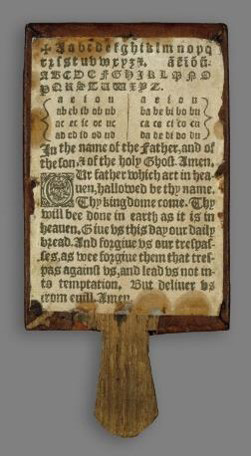 ✠ A a b c d e f g h i k l m n o p q
r ꝛ s ſ t u v w x y z
A B C D E F G H I K L P N O
P Q R S T U W X Y Z.
a e i o u a e i o u
ab eb ib ob ub ba be bi bo bu
ac ec ic oc uc ca ce ci co cu
ad ed id od ud da de di do du
In the name of the Father, and of
the ſon, & of the holy Ghoſt. Amen.
OUr father which art in hea-
uen, hallowed be thy name.
Thy kingdome come. Thy
will bee done in earth as it is in
heauen. Giue vs this day our daily
bread. And forgiue vs our treſpaſ-
ſes, as wee forgiue them that treſ-
pas againſt vs, and lead vs not in-
to temptation, But deliuer vs
from euill. Amen.